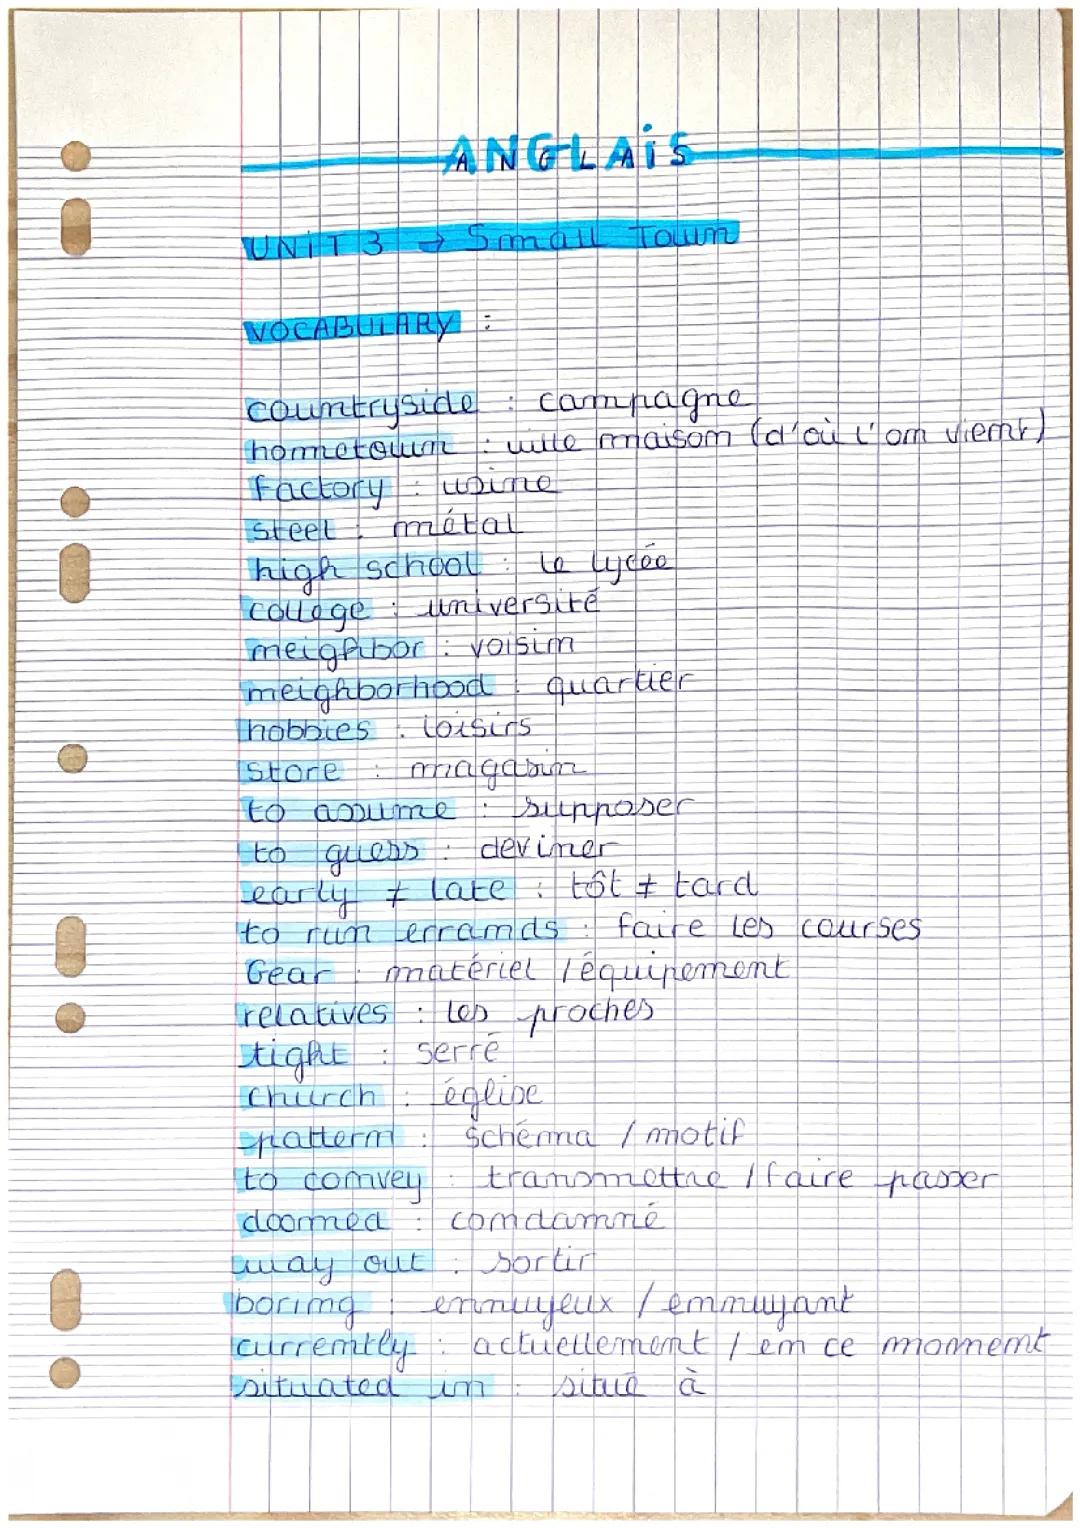 ANGLAIS
UNIT 3 → Small Town
VOCABULARY :
countryside : campagne
hometown : ville maison (d'où l'on vient)
factory : usine
steel : métal
high school : le lycée
college : université
neighbor : voisin
neighborhood : quartier
hobbies : loisirs
store : magasin
to assume : supposer
to guess : deviner
early ≠ late : tôt ≠ tard
to run errands : faire les courses
Gear : matériel / équipement
relatives : les proches
tight : serré
church : église
pattern : schéma / motif
to convey : transmettre / faire passer
doomed : condamné
way out : sortir
boring : ennuyeux / ennuyant
currently : actuellement / en ce moment
situated in : situé à